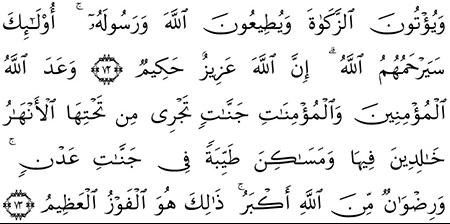 وَيُؤْتُونَ ٱلزَّكَوٰةَ وَيُطِيعُونَ ٱللَّهَ وَرَسُولَهُۥٓ ۚ أُو۟لَـٰٓئِكَ
سَيَرْحَمُهُمُ ٱللَّهُ ۗ إِنَّ ٱللَّهَ عَزِيزٌ حَكِيمٌ ﴿٧٢﴾ وَعَدَ ٱللَّهُ
ٱلْمُؤْمِنِينَ وَٱلْمُؤْمِنَـٰتِ جَنَّـٰتٍ تَجْرِى مِن تَحْتِهَا ٱلْأَنْهَـٰرُ
خَـٰلِدِينَ فِيهَا وَمَسَـٰكِنَ طَيِّبَةً فِى جَنَّـٰتِ عَدْنٍ ۚ
وَرِضْوَٰنٌ مِّنَ ٱللَّهِ أَكْبَرُ ۚ ذَٰلِكَ هُوَ ٱلْفَوْزُ ٱلْعَظِيمُ ﴿٧٣﴾